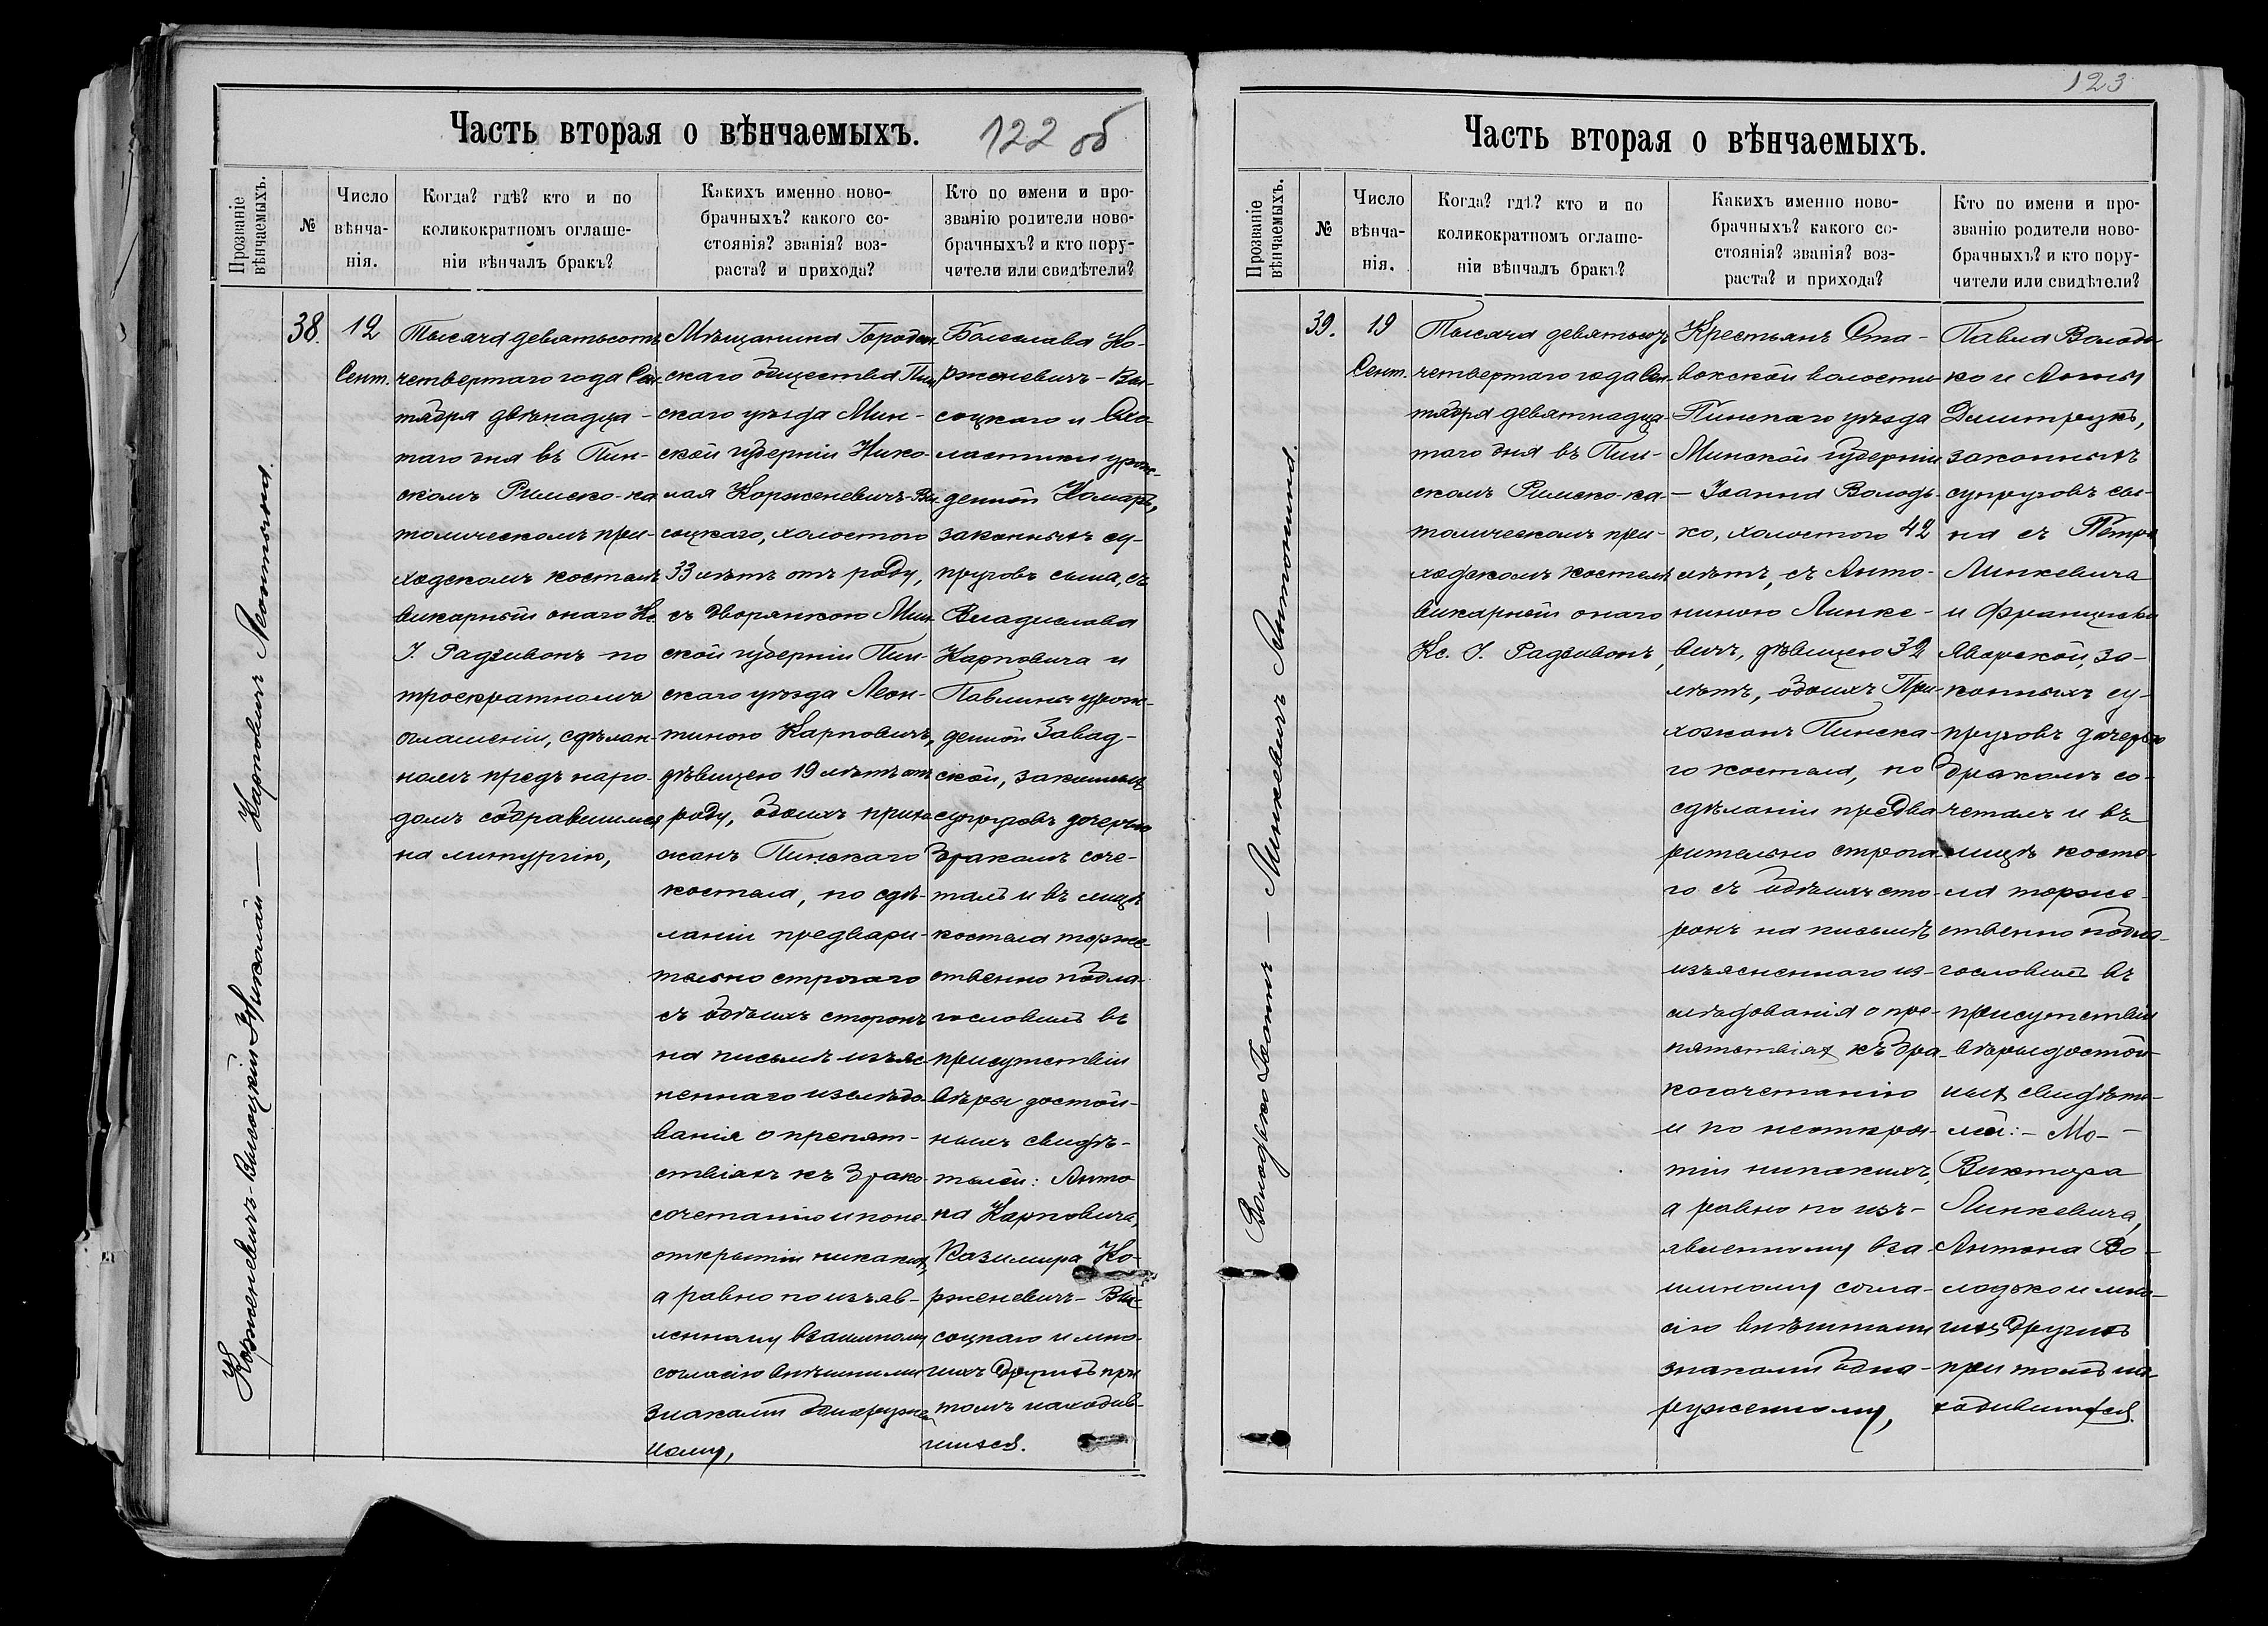 Часть вторая о вѣнчаемыхъ.
122 об
Прозваніе
вѣнчаемыхъ.
№
Число
вѣнча-
нія.
Когда? гдѣ? кто и по
коликократномъ оглаше-
ніи вѣнчалъ бракъ?
Какихъ именно ново-
брачныхъ? какого со-
стоянія? званія? воз-
раста? и прихода?
Кто по имени и про-
званію родители ново-
брачныхъ? и кто пору-
чители или свидѣтели?
Корженевичъ-Высоцкій Николай — Карповичъ Леонтына.
38.
12
Сент.
Тысяча девятьсотъ
четвертаго года Сен-
тября двѣнадца-
таго дня въ Пин-
скомъ Римско-ка
толическомъ при-
ходскомъ костелѣ
викарный онаго Кс.
І. Радзивонъ по
троекратномъ
оглашеніи, сдѣлан-
номъ предъ наро-
домъ собравшимся
на литургію,
Мѣщанина Городен-
скаго общества Пин
скаго уѣзда Мин-
ской губерніи Нико-
лая Корженевичъ-Вы-
соцкаго, холостого
33 лѣтъ отъ роду,
съ дворянкою Мин-
ской губерніи Пин-
скаго уѣзда Леон-
тиною Карповичъ,
дѣвицею 19 лѣтъ отъ
роду, обоихъ прихо
жанъ Пинскаго
костела, по сдѣ-
ланіи предвари-
тельно строгаго
съ обѣихъ сторонъ
на письмѣ изъяс-
неннаго изслѣдо-
ванія о препят-
ствіяхъ къ брако-
сочетанію и по не-
открытіи никакихъ,
а равно по изъяв-
ленному взаимному
согласію внѣшними
знаками обнаружен
ному,
Болеслава Ко-
рженевичъ-Вы-
соцкаго и
урож-
денной Комаръ,
законныхъ су-
пруговъ сына, съ
Владислава
Карповича и
Павлины урож-
денной Завад-
ской, законныхъ
супруговъ дочерью
бракомъ соче-
талъ и въ лицѣ
костела торже-
ственно побла-
гословилъ въ
присутствіи
вѣры достой-
ныхъ свидѣ-
телей: Анто
на Карповича,
Казимира Ко-
рженевичъ-Вы-
соцкаго и мно-
гихъ другихъ при
томъ находив-
шихся.
123
Часть вторая о вѣнчаемыхъ.
Прозваніе
вѣнчаемыхъ.
№
Число
вѣнча-
нія.
Когда? гдѣ? кто и по
коликократномъ оглаше-
ніи вѣнчалъ бракъ?
Какихъ именно ново-
брачныхъ? какого со-
стоянія? званія? воз-
раста? и прихода?
Кто по имени и про-
званію родители ново-
брачныхъ? и кто пору-
чители или свидѣтели?
Володько Іоаннъ — Линкевичъ Антонина.
39.
19
Сент.
Тысяча девятьсотъ
четвертаго года Сен-
тября девятнадца-
таго дня въ Пин-
скомъ Римско-ка-
толическомъ при-
ходскомъ костелѣ
викарный онаго
Кс. І. Радзивонъ,
Крестьянъ Ста-
вокской волости
Пинскаго уѣзда
Минской губерніи
— Іоанна Володь-
ко, холостого 42
лѣтъ, съ Анто-
ниною Линке-
вичъ, дѣвицею 32
лѣтъ, обоихъ При-
хожанъ Пинска-
го костела, по
сдѣланіи предва
рительно строга-
го съ обѣихъ сто-
ронъ на письмѣ
изъясненнаго из-
слѣдованія о пре-
пятствіях къ бра-
косочетанію
и по неоткры-
тіи никакихъ,
а равно по изъ-
явленному вза-
имному согла-
сію внѣшними
знаками обна-
руженному,
Павла Володь
ко и Анны
Димитрукъ,
законныхъ
супруговъ сы-
на съ Петра
Линкевича
и Францишки
Яворской, за-
конныхъ су-
пруговъ дочерью
бракомъ со-
четалъ и въ
лицѣ косте-
ла торже-
ственно побла-
гословилъ въ
присутствіи
вѣры достой-
ных свидѣте-
лей: — Мо- —
Виктора
Линкевича,
Антона Во-
лодько и мно-
гихъ другихъ
при томъ на-
ходившихся.